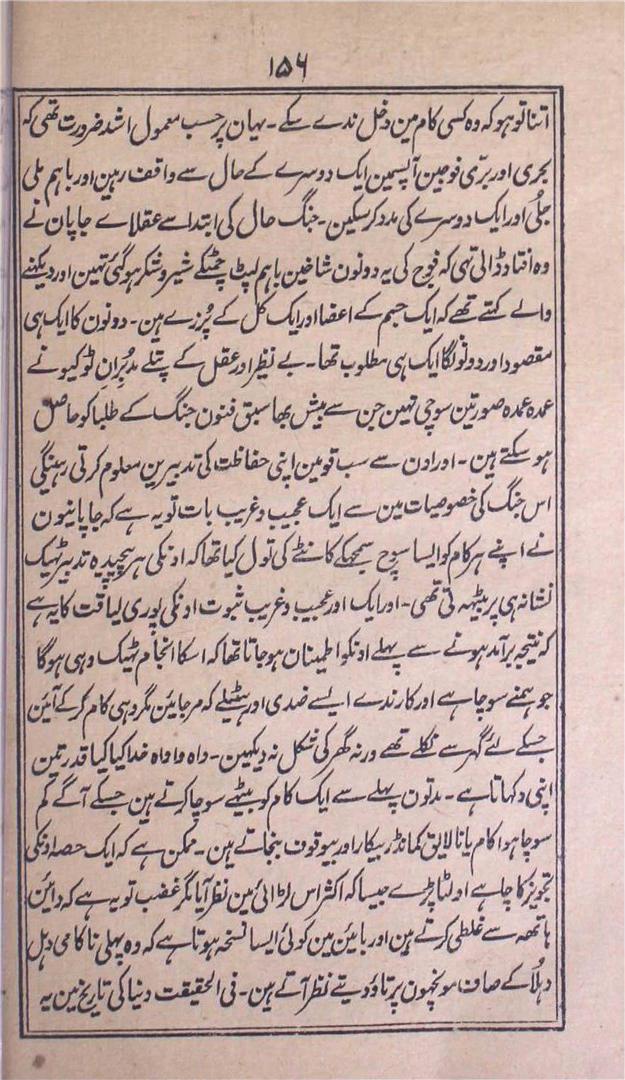 ۱۵۶
اتنا تو ہو کہ وہ کسی کام مین دخل ندے سکے ۔ یہان پر حسب معمول اشد ضرورت تھی کہ
بحری اور برّی فوجین آپسمین ایک دوسرے کے حال سے واقف رہین اور باہم ملی
جلُی اور ایک دوسرے کی مدد کر سکین ۔ جنگ حال کی ابتدا سے عقلاے جاپان نے
وہ افتاد ڈالی تہی کہ فوج کی یہ دونون شاخین باہم لپٹ چمٹکے شیر و شکر ہو گئی تہین اور دیکہنے
والے کہتے تھے کہ ایک جسم کے اعضا اور ایک کل کے پُرزے ہین ۔ دونون کا ایک ہی
مقصود اور دونو لگا ایک ہی مطلوب تھا ۔ بے نظیر اور عقل کے پتلے مدبرانِ ٹوکیو نے
عمدہ عمدہ صورتین سوچی تہین جن سے بیش بہا سبق فنون جنگ کے طلبا کو حاصل
ہو سکتے ہین ۔ اور اون سے سب قومین اپنی حفاظت کی تدبیرین معلوم کرتی رہینگی
اس جنگ کی خصوصیات مین سے ایک عجیب و غریب بات تو یہ ہے کہ جاپانیون
نے اپنے ہر کام کو ایسا سوچ سمجھکے کانٹے کی تول کیا تھا کہ اونکی ہر پیچیدہ تدبیر ٹہیک
نشانہ ہی پر بیٹہہ تی تھی ۔ اور ایک اور عجیب و غریب ثبوت اونکی پوری لیاقت کا یہ ہے
کہ نتیجہ برآمد ہونے سے پہلے اونکو اطمینان ہو جاتا تھا کہ اسکا انجام ٹہیک وہی ہوگا
جو ہمنے سوچا ہے اور کارندے ایسے ضدی اور ہٹیلے کہ مر جائین مگر وہی کام کر کے آئین
جسکے لئے گہر سے نکلے تھے ورنہ گھر کی شکل نہ دیکہین ۔ واہ وا واہ خدا کیا کیا قدرتین
اپنی دکہاتا ہے ۔ مدتون پہلے سے ایک کام کو بیٹہے سوچا کرتے ہین جسکے آگے کم
سوچا ہوا کام یا نالایق کمانڈر بیکار اور بیوقوف بنجاتے ہین ۔ ممکن ہے کہ ایک حصہ اونکی
تجویز کا چاہے اولٹا پڑے جیسا کہ اکثر اس لڑائی مین نظر آیا مگر غضب تو یہ ہے کہ دائین
ہاتھہ سے غلطی کرتے ہین اور بائین مین کوئی ایسا نسخہ ہوتا ہے کہ وہ پہلی ناکامی دہل
دہلا کے صاف مونچھون پر تاؤ دیتے نظر آتے ہین ۔ فی الحقیقت دنیا کی تاریخ مین یہ